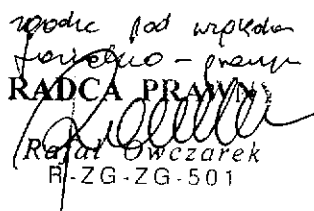 zgodne pod względem
formalno - prawnym
RADCA PRAWNY
Rafał Owczarek
R-ZG-ZG-501